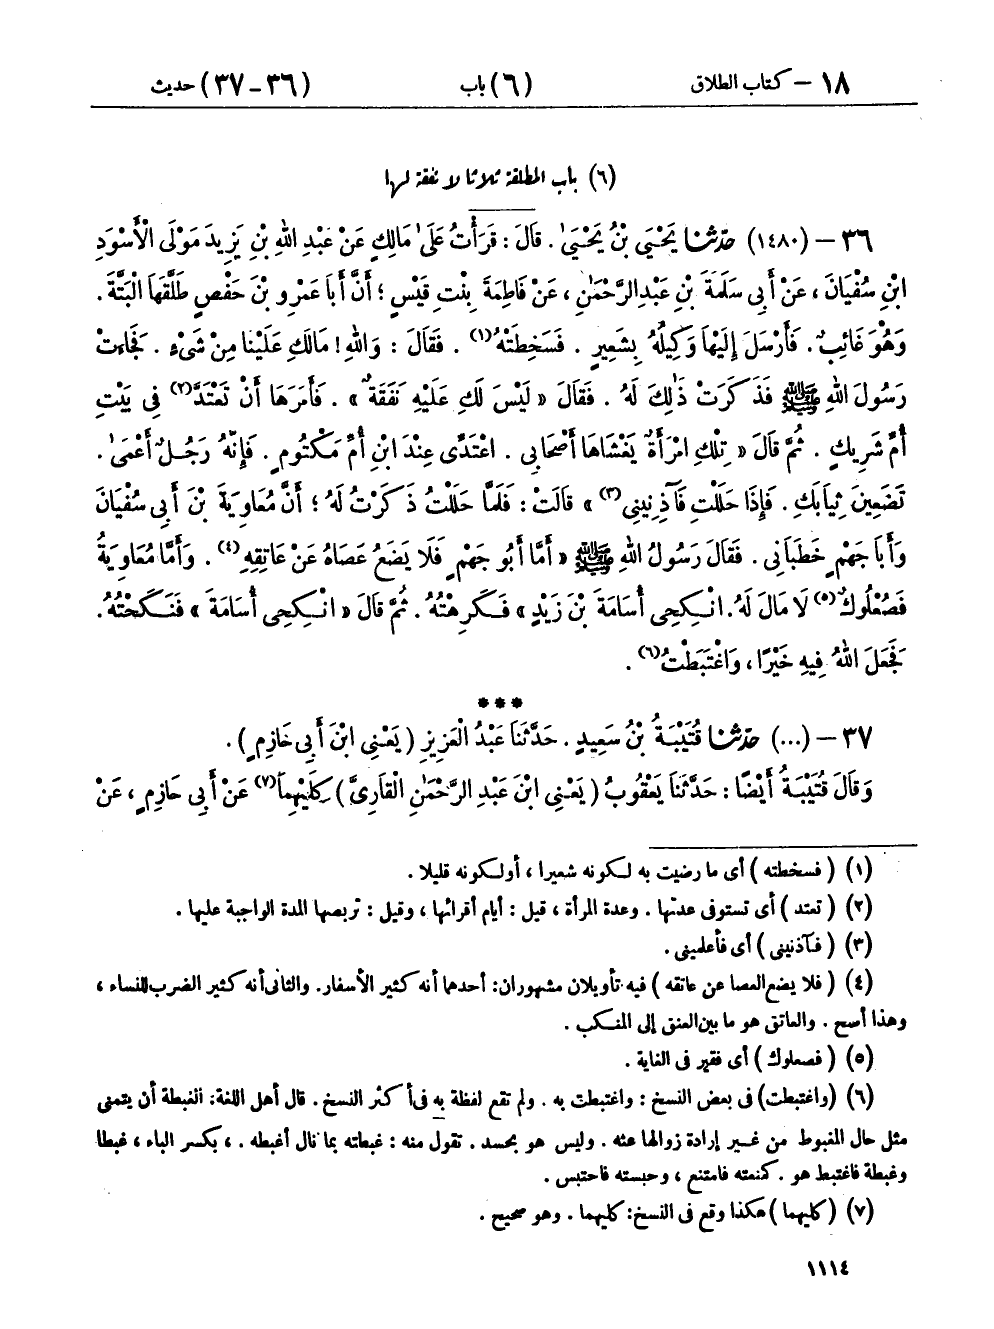 ١٨ – كتاب الطلاق (٦) باب (٣٦ – ٣٧) حديث
(٦) باب المطلقة ثلاثا لا نفقة لها
٣٦ – (١٤٨٠) حَدَّثَنَا يَحْيَى بْنُ يَحْيَىٰ. قَالَ: قَرَأْتُ عَلَىٰ مَالِكٍ عَنْ عَبْدِ اللهِ بْنِ يَزِيدَ مَوْلَى الْأَسْوَدِ
ابْنِ سُفْيَانَ، عَنْ أَبِي سَلَمَةَ بْنِ عَبْدِ الرَّحْمَٰنِ، عَنْ فَاطِمَةَ بِنْتِ قَيْسٍ؛ أَنَّ أَبَا عَمْرِو بْنَ حَفْصٍ طَلَّقَهَا الْبَتَّةَ.
وَهُوَ غَائِبٌ. فَأَرْسَلَ إِلَيْهَا وَكِيلُهُ بِشَعِيرٍ. فَسَخِطَتْهُ(١). فَقَالَ: وَاللهِ! مَالَكِ عَلَيْنَا مِنْ شَيْءٍ. فَجَاءَتْ
رَسُولَ اللهِ ﷺ فَذَكَرَتْ ذَٰلِكَ لَهُ. فَقَالَ «لَيْسَ لَكِ عَلَيْهِ نَفَقَةٌ». فَأَمَرَهَا أَنْ تَعْتَدَّ(٢) فِي بَيْتِ
أُمِّ شَرِيكٍ. ثُمَّ قَالَ «تِلْكِ امْرَأَةٌ يَغْشَاهَا أَصْحَابِي. اعْتَدِّي عِنْدَ ابْنِ أُمِّ مَكْتُومٍ. فَإِنَّهُ رَجُلٌ أَعْمَىٰ.
تَضَعِينَ ثِيَابَكِ. فَإِذَا حَلَلْتِ فَآذِنِينِي(٣)» قَالَتْ: فَلَمَّا حَلَلْتُ ذَكَرْتُ لَهُ؛ أَنَّ مُعَاوِيَةَ بْنَ أَبِي سُفْيَانَ
وَأَبَا جَهْمٍ خَطَبَانِي. فَقَالَ رَسُولُ اللهِ ﷺ «أَمَّا أَبُو جَهْمٍ فَلَا يَضَعُ عَصَاهُ عَنْ عَاتِقِهِ(٤). وَأَمَّا مُعَاوِيَةُ
فَصُعْلُوكٌ(٥) لَا مَالَ لَهُ. انْكِحِي أُسَامَةَ بْنَ زَيْدٍ» فَكَرِهْتُهُ. ثُمَّ قَالَ «انْكِحِي أُسَامَةَ» فَنَكَحْتُهُ.
فَجَعَلَ اللهُ فِيهِ خَيْرًا، وَاغْتَبَطْتُ(٦).
***
٣٧ – (...) حَدَّثَنَا قُتَيْبَةُ بْنُ سَعِيدٍ. حَدَّثَنَا عَبْدُ الْعَزِيزِ (يَعْنِي ابْنَ أَبِي حَازِمٍ).
وَقَالَ قُتَيْبَةُ أَيْضًا: حَدَّثَنَا يَعْقُوبُ (يَعْنِي ابْنَ عَبْدِ الرَّحْمَٰنِ الْقَارِيَّ) كِلَيْهِمَا(٧) عَنْ أَبِي حَازِمٍ، عَنْ
(١) (فسخطته) أى ما رضيت به لكونه شعيرا، أولكونه قليلا.
(٢) (تعتد) أى تستوفى عدتها. وعدة المرأة، قيل: أيام أقرائها، وقيل: تربصها المدة الواجبة عليها.
(٣) (فآذنينى) أى فأعلمينى.
(٤) (فلا يضع العصا عن عاتقه) فيه تأويلان مشهوران: أحدهما أنه كثير الأسفار. والثانى أنه كثير الضرب للنساء،
وهذا أصح. والعاتق هو ما بين العنق إلى المنكب.
(٥) (فصعلوك) أى فقير فى الغاية.
(٦) (واغتبطت) فى بعض النسخ: واغتبطت به. ولم تقع لفظة به فى أكثر النسخ. قال أهل اللغة: الغبطة أن يتمنى
مثل حال المغبوط من غير إرادة زوالها عنه. وليس هو بحسد. تقول منه: غبطته بما نال أغبطه.، بكسر الباء، غبطا
وغبطة فاغتبط هو. كمنعته فامتنع، وحبسته فاحتبس.
(٧) (كليهما) هكذا وقع فى النسخ: كليهما. وهو صحيح.
١١١٤